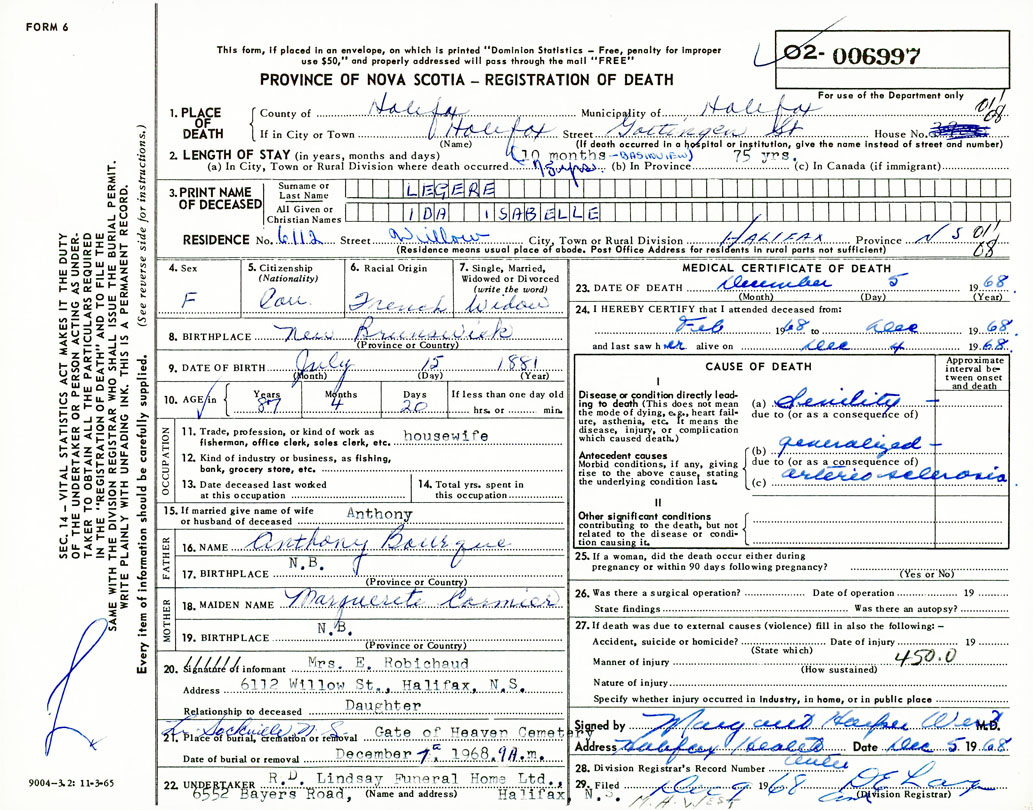 FORM 6
This form, if placed in an envelope, on which is printed "Dominion Statistics – Free, penalty for improper
use $50," and properly addressed will pass through the mail "FREE"
PROVINCE OF NOVA SCOTIA – REGISTRATION OF DEATH
02- 006997
For use of the Department only
1. PLACE OF DEATH County of Halifax Municipality of Halifax 01/08
If in City or Town Halifax Street Gottingen St House No.
(Name) (If death occurred in a hospital or institution, give the name instead of street and number)
2. LENGTH OF STAY (in years, months and days) (10 months – BASINVIEW) 75 yrs.
(a) In City, Town or Rural Division where death occurred 75 yrs. (b) In Province (c) In Canada (if immigrant)
3. PRINT NAME OF DECEASED
Surname or Last Name LEGERE
All Given or Christian Names IDA ISABELLE
RESIDENCE No. 6112 Street Willow City, Town or Rural Division HALIFAX Province N S 01/08
(Residence means usual place of abode. Post Office Address for residents in rural parts not sufficient)
4. Sex F
5. Citizenship (Nationality) Can.
6. Racial Origin French
7. Single, Married, Widowed or Divorced (write the word) Widow
8. BIRTHPLACE New Brunswick
(Province or Country)
9. DATE OF BIRTH July 15 1881
(Month) (Day) (Year)
10. AGE in Years 87 Months 4 Days 20 If less than one day old hrs. or min.
OCCUPATION
11. Trade, profession, or kind of work as fisherman, office clerk, sales clerk, etc. housewife
12. Kind of industry or business, as fishing, bank, grocery store, etc.
13. Date deceased last worked at this occupation
14. Total yrs. spent in this occupation
15. If married give name of wife or husband of deceased Anthony
FATHER
16. NAME Anthony Bourque
17. BIRTHPLACE N.B.
(Province or Country)
MOTHER
18. MAIDEN NAME Marguerite Cormier
19. BIRTHPLACE N.B.
(Province or Country)
20. Signature of informant Mrs. E. Robichaud
Address 6112 Willow St., Halifax, N.S.
Relationship to deceased Daughter
Lr. Sackville N.S.
21. Place of burial, cremation or removal Gate of Heaven Cemetery
Date of burial or removal December 7th, 1968. 9A.m.
22. UNDERTAKER R.D. Lindsay Funeral Home Ltd.,
6552 Bayers Road, (Name and address) Halifax, N.S.
MEDICAL CERTIFICATE OF DEATH
23. DATE OF DEATH December 5 1968
(Month) (Day) (Year)
24. I HEREBY CERTIFY that I attended deceased from:
Feb 1968 to Dec 1968
and last saw her alive on Dec 4 1968.
CAUSE OF DEATH
Approximate interval between onset and death
I
Disease or condition directly leading to death (This does not mean the mode of dying, e.g., heart failure, asthenia, etc. It means the disease, injury, or complication which caused death.)
(a) Senility –
due to (or as a consequence of)
Antecedent causes
Morbid conditions, if any, giving rise to the above cause, stating the underlying condition last.
(b) generalized –
due to (or as a consequence of)
(c) arterio sclerosis
II
Other significant conditions contributing to the death, but not related to the disease or condition causing it.
25. If a woman, did the death occur either during pregnancy or within 90 days following pregnancy?
(Yes or No)
26. Was there a surgical operation? Date of operation 19
State findings Was there an autopsy?
27. If death was due to external causes (violence) fill in also the following:–
Accident, suicide or homicide? Date of injury 19
(State which)
Manner of injury 450.0
(How sustained)
Nature of injury
Specify whether injury occurred in Industry, in home, or in public place
Signed by Margaret Harper West M.D.
Address Halifax Health Centre Date Dec 5 1968
28. Division Registrar's Record Number
29. Filed Dec 9 1968
(Division Registrar)
M. H. WEST
SEC. 14 – VITAL STATISTICS ACT MAKES IT THE DUTY
OF THE UNDERTAKER OR PERSON ACTING AS UNDER-
TAKER TO OBTAIN ALL THE PARTICULARS REQUIRED
IN THE "REGISTRATION OF DEATH" AND TO FILE THE
SAME WITH THE DIVISION REGISTRAR WHO SHALL ISSUE THE BURIAL PERMIT.
WRITE PLAINLY WITH UNFADING INK. THIS IS A PERMANENT RECORD.
Every item of information should be carefully supplied. (See reverse side for instructions.)
9004–3.2: 11-3-65